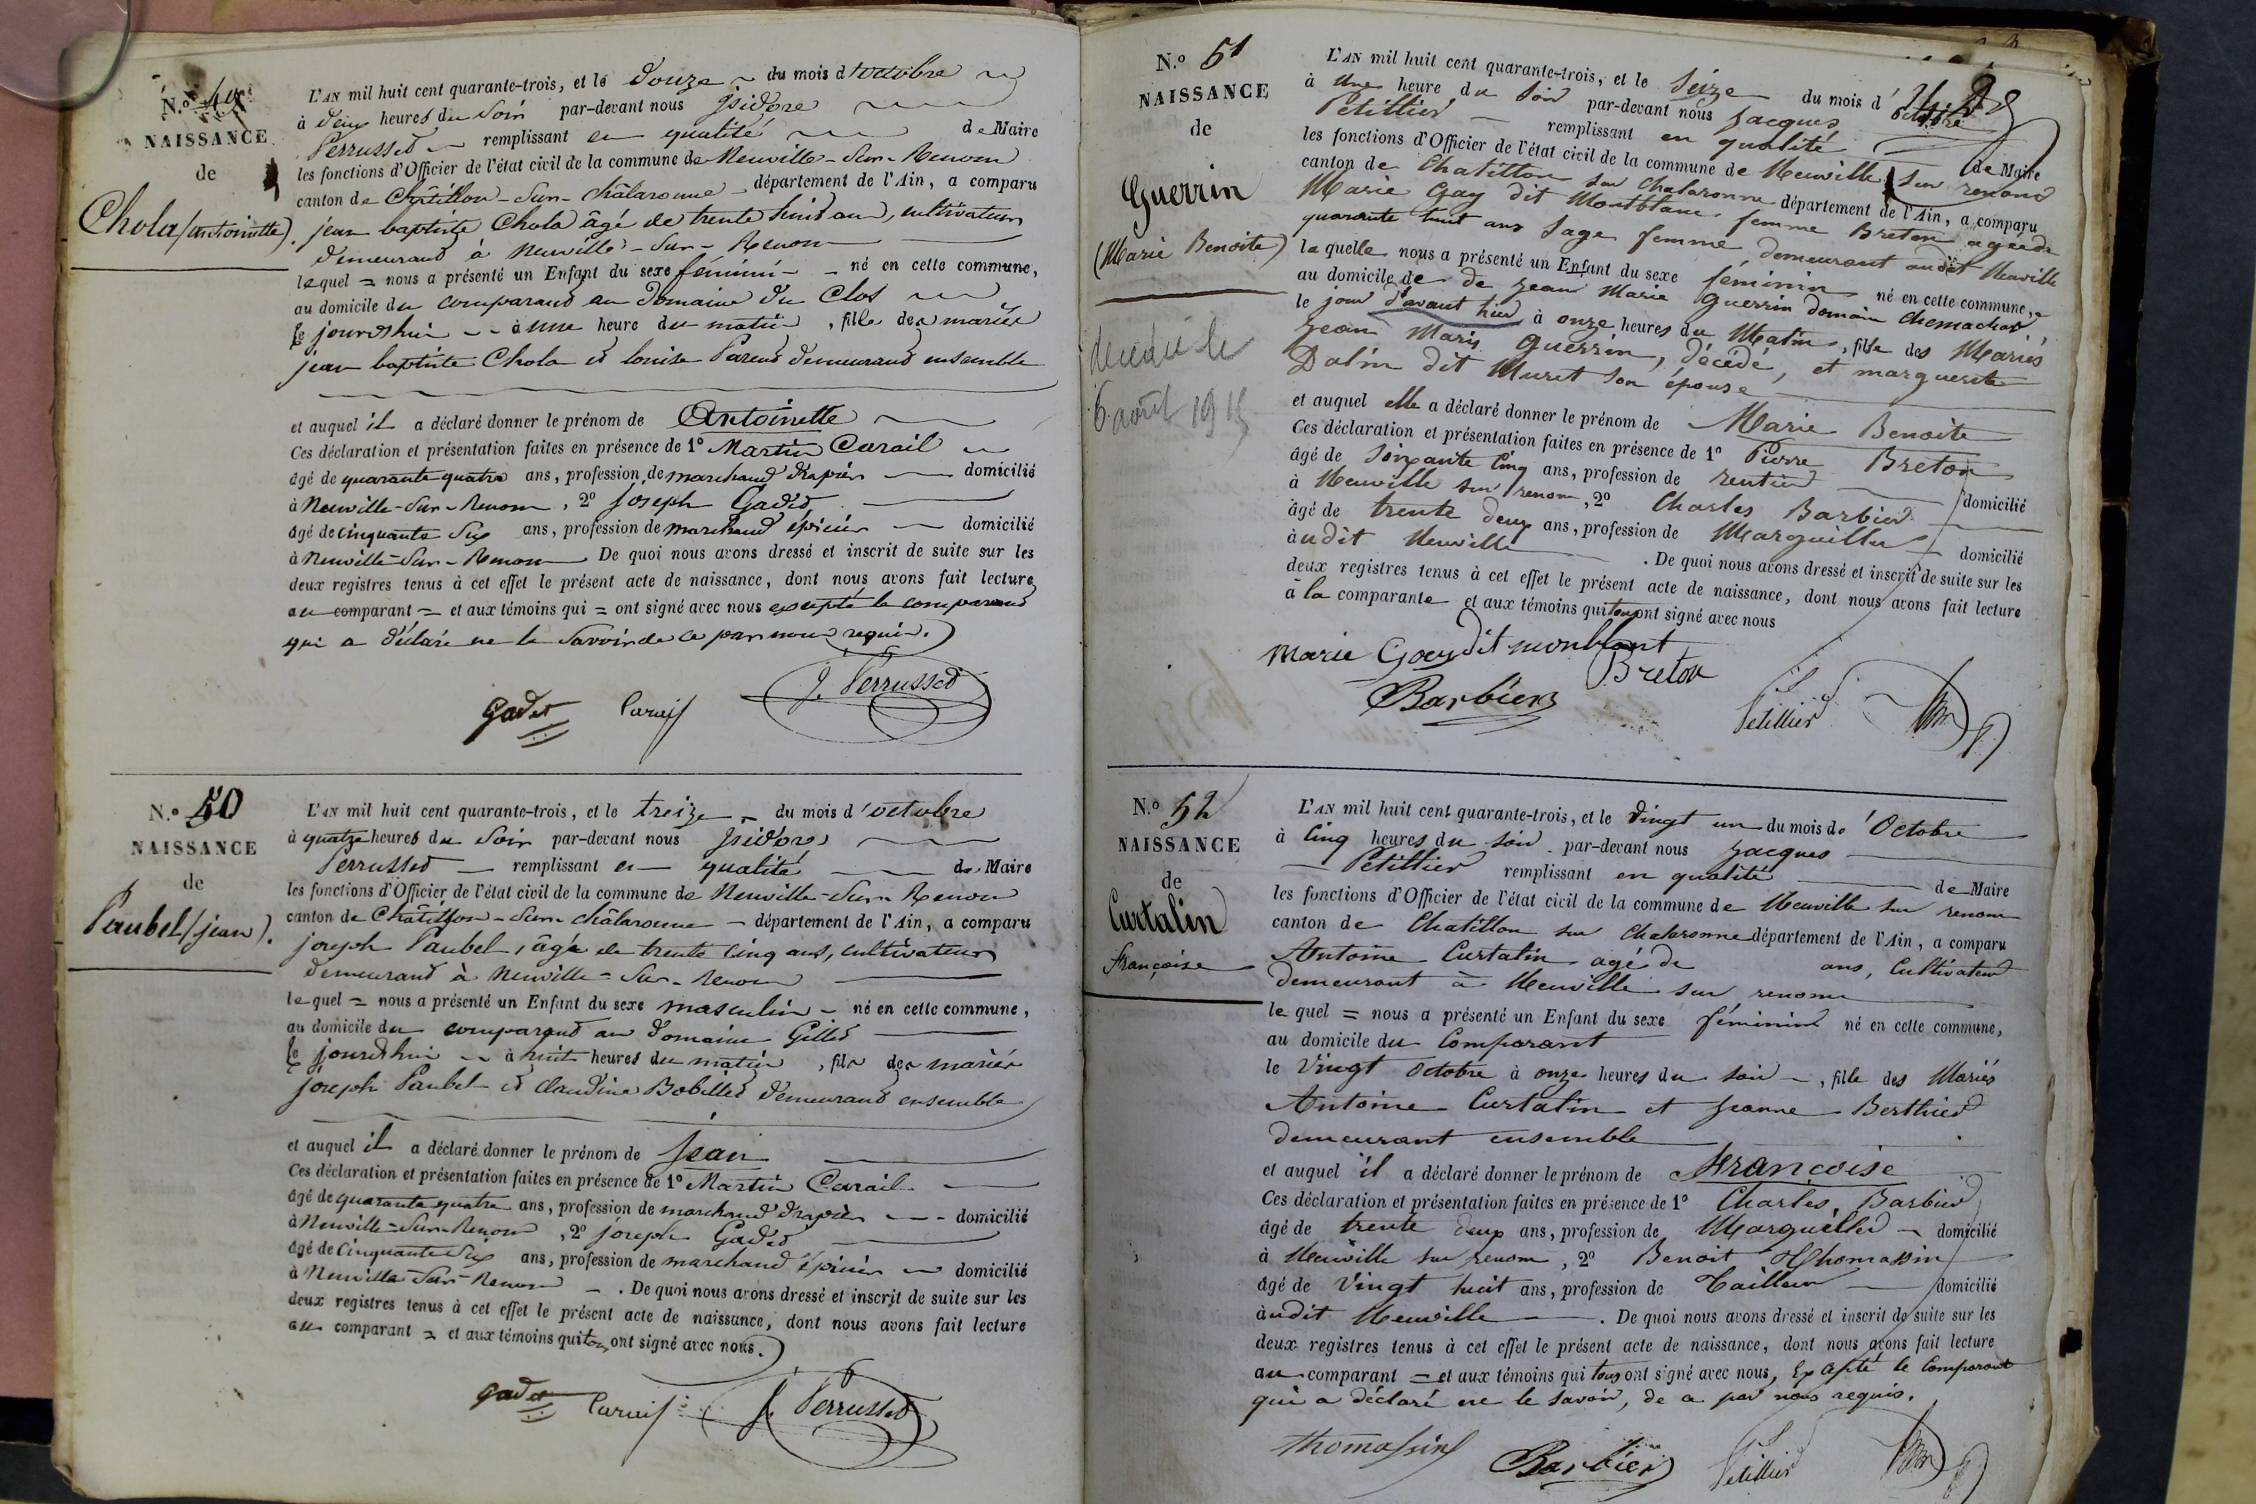 N.º 49
NAISSANCE
de
Chola (antoinette).
L'AN mil huit cent quarante-trois, et le douze du mois d'octobre
à deux heures du soir par-devant nous isidore
Perrussed remplissant en qualité de Maire
les fonctions d'Officier de l'état civil de la commune de Neuville-sur-Renom
canton de Châtillon-sur-châlaronne département de l'Ain, a comparu
jean baptiste Chola âgé de trente huit ans, cultivateur
demeurand à Neuville-sur-Renom
lequel = nous a présenté un Enfant du sexe féminin né en cette commune,
au domicile du comparand au domaine du Clos
le jourd'hui à une heure du matin, fille des mariés
jean baptiste Chola et louise Parend demeurand ensemble
et auquel il a déclaré donner le prénom de Antoinette
Ces déclaration et présentation faites en présence de 1º Martin Carail
âgé de quarante quatre ans, profession de marchand drapier domicilié
à Neuville-sur-Renom, 2º joseph Gaded
âgé de cinquante six ans, profession de marchand épicier domicilié
à Neuville-sur-Renom De quoi nous avons dressé et inscrit de suite sur les
deux registres tenus à cet effet le présent acte de naissance, dont nous avons fait lecture
au comparant = et aux témoins qui = ont signé avec nous excepté le comparand
qui a déclaré ne le savoir de ce par nous requis.
Gadet Carail J. Perrussed
N.º 50
NAISSANCE
de
Paubel (jean).
L'AN mil huit cent quarante-trois, et le treize du mois d'octobre
à quatre heures du soir par-devant nous isidore
Perrussed remplissant en qualité de Maire
les fonctions d'Officier de l'état civil de la commune de Neuville-sur-Renom
canton de Châtillon-sur-châlaronne département de l'Ain, a comparu
joseph Paubel, âgé de trente cinq ans, cultivateur
demeurand à Neuville-sur-Renom
lequel = nous a présenté un Enfant du sexe masculin né en cette commune,
au domicile du comparand au domaine Gilles
le jourd'hui à huit heures du matin, fils des mariés
joseph Paubel et claudine Bobilled demeurand ensemble
et auquel il a déclaré donner le prénom de jean
Ces déclaration et présentation faites en présence de 1º Martin Carail
âgé de quarante quatre ans, profession de marchand drapier domicilié
à Neuville-sur-Renom, 2º joseph Gaded
âgé de cinquante six ans, profession de marchand épicier domicilié
à Neuville-sur-Renom. De quoi nous avons dressé et inscrit de suite sur les
deux registres tenus à cet effet le présent acte de naissance, dont nous avons fait lecture
au comparant = et aux témoins qui tous ont signé avec nous.
Gadet Carail J. Perrussed
N.º 51
NAISSANCE
de
Guerrin
(Marie Benoite)
décédée le
6 août 1915
L'AN mil huit cent quarante-trois, et le Seize du mois d'octobre
à une heure du soir par-devant nous Jacques
Petillier remplissant en qualité de Maire
les fonctions d'Officier de l'état civil de la commune de Neuville sur renom
canton de Chatillon sur Chalaronne département de l'Ain, a comparu
Marie Gay dit Montblanc femme Breton agée de
quarante huit ans Sage femme demeurant audit Neuville
laquelle nous a présenté un Enfant du sexe féminin né en cette commune,
au domicile de de Jean Marie Guerrin domaine Chemachat
le jour d'avant hier à onze heures du Matin, fille des Mariés
Jean Marie Guerrin, décédé, et marguerite
Dalin dit Muret son épouse
et auquel elle a déclaré donner le prénom de Marie Benoite
Ces déclaration et présentation faites en présence de 1º Pierre Breton
âgé de soixante cinq ans, profession de rentier domicilié
à Neuville sur renom, 2º Charles Barbier
âgé de trente deux ans, profession de Marguiller domicilié
à udit Neuville. De quoi nous avons dressé et inscrit de suite sur les
deux registres tenus à cet effet le présent acte de naissance, dont nous avons fait lecture
à la comparante et aux témoins qui tous ont signé avec nous
marie Gay dit monblant
Breton
Barbier Petillier
N.º 52
NAISSANCE
de
Curtalin
françoise
L'AN mil huit cent quarante-trois, et le vingt un du mois de Octobre
à Cinq heures du soir par-devant nous Jacques
Petillier remplissant en qualité de Maire
les fonctions d'Officier de l'état civil de la commune de Neuville sur renom
canton de Chatillon sur Chalaronne département de l'Ain, a comparu
Antoine Curtalin agé de ans, Cultivateur
demeurant à Neuville sur renom
lequel = nous a présenté un Enfant du sexe féminin né en cette commune,
au domicile du Comparant
le Vingt Octobre à onze heures du soir, fille des Mariés
Antoine Curtalin et Jeanne Berthier
demeurant ensemble
et auquel il a déclaré donner le prénom de Françoise
Ces déclaration et présentation faites en présence de 1º Charles Barbier
âgé de trente deux ans, profession de Marguiller domicilié
à Neuville sur renom, 2º Benoit Thomassin
âgé de Vingt huit ans, profession de Tailleur domicilié
à udit Neuville. De quoi nous avons dressé et inscrit de suite sur les
deux registres tenus à cet effet le présent acte de naissance, dont nous avons fait lecture
au comparant = et aux témoins qui tous ont signé avec nous, Excepté le Comparant
qui a déclaré ne le savoir, de ce par nous requis.
Thomassin Barbier Petillier